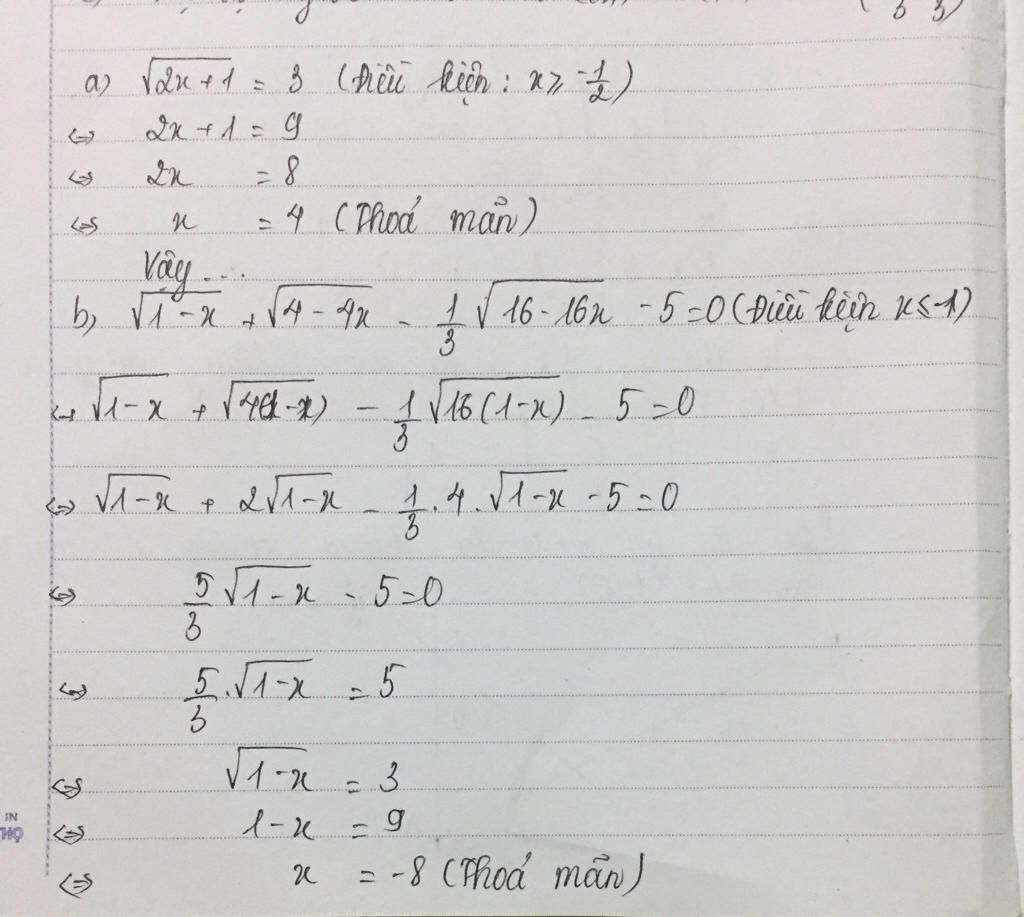 3 3)
a) √2x+1 = 3 (Điều kiện : x ≥ -1/2)
<=> 2x + 1 = 9
<=> 2x = 8
<=> x = 4 (Thoả mãn)
Vậy ...
b) √1-x + √4-4x - 1/3 √16-16x - 5=0 (Điều kiện x ≤ -1)
<=> √1-x + √4(1-x) - 1/3 √16(1-x) - 5 = 0
<=> √1-x + 2√1-x - 1/3 . 4 . √1-x - 5 = 0
<=> 5/3 √1-x - 5 = 0
<=> 5/3 . √1-x = 5
<=> √1-x = 3
<=> 1-x = 9
<=> x = -8 (Thoả mãn)
IN
THỌ